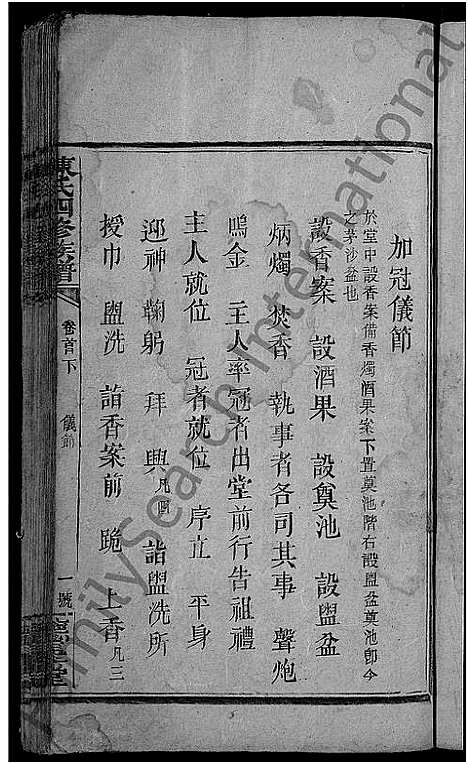 加冠儀節
於堂中設香案備香燭酒果案下置奠池階右設盥盆奠池卽今
之茅沙盆也
設香案 設酒果 設奠池 設盥盆
炳燭 焚香 執事者各司其事 聲炮
鳴金 主人率冠者出堂前行告祖禮
主人就位 冠者就位 序立 平身
迎神 鞠躬 拜 興凡四 詣盥洗所
授巾 盥洗 詣香案前 跪 上香凡三
陳氏四修族譜
卷首下 儀節 一號
堂
FamilySearch International